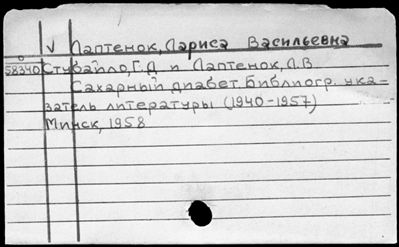 V Лаптенок, Лариса Васильевна
58340 Стубайло, Г.Д и Лаптенок, Л.В
Сахарный диабет. Библиогр. ука-
затель литературы (1940-1957)
Минск, 1958